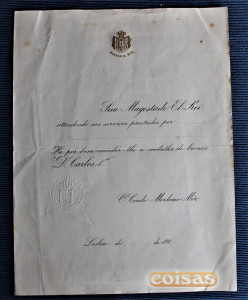 Sua Magestade El-Rei,
attendendo aos serviços prestados por
Ha por bem conceder-lhe a medalha de bronze
"D. Carlos 1º"
O Conde Mordomo-Mór,
Lisboa de de 190
coisas